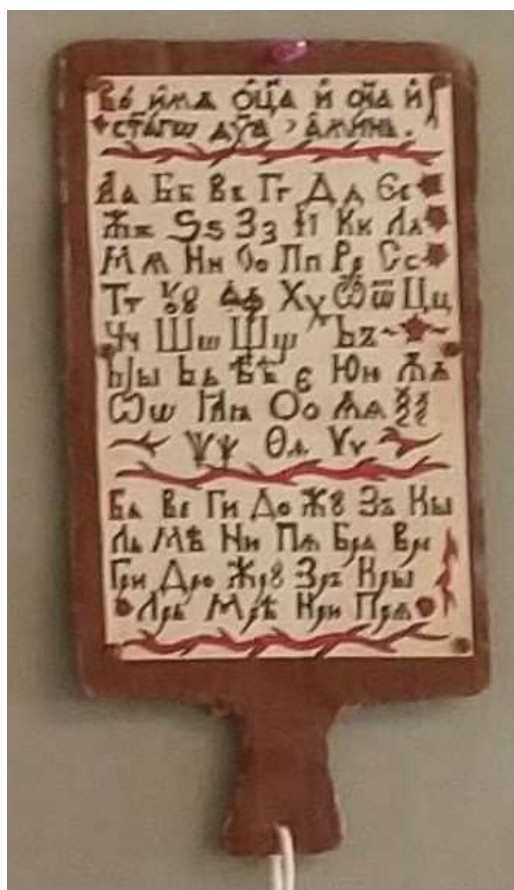 Во́ и́мѧ Ѻ҆ц҃а и҆ с҃на и҆
ст҃а́гѡ дх҃а , а҆ми́нь .
Аа Бб Вв Гг Дд Єє
Жж Ѕѕ Зз Іі Кк Лл
Мм Нн Оо Пп Рр Сс
Тт Ꙋꙋ Фф Хх Ѿѿ Цц
Чч Шш Щщ Ъъ
Ыы Ьь Ѣѣ є Юю Ѫѫ
Ѡѡ Ꙗꙗ Оо Ѧѧ Ѯѯ
Ѱѱ Ѳѳ Ѵѵ
Ба Ве Ги До Жꙋ Зъ Кы
Ль Мѣ Ни Пѧ Бра Вре
Гри Дро Жрꙋ Зръ Кры
Лрь Мрѣ Нри Прѧ